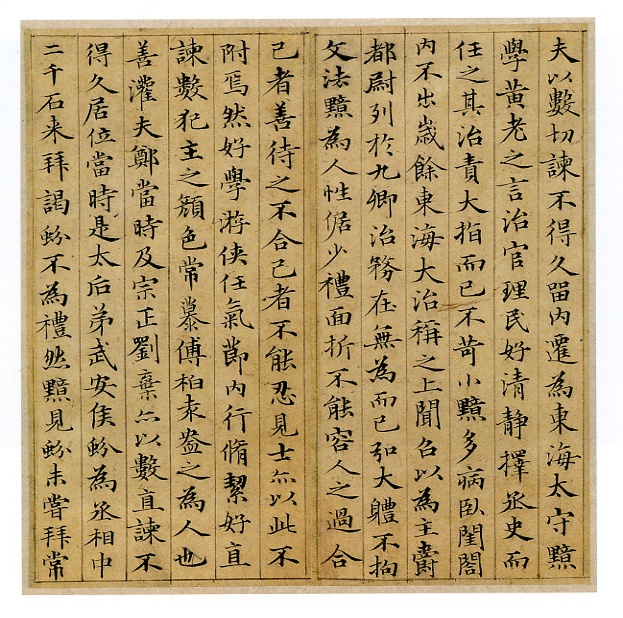 夫以數切諫不得久留內遷為東海太守黯
學黃老之言治官理民好清静擇丞史而
任之其治責大指而已不苛小黯多病臥閨閤
內不出歲餘東海大治稱之上聞召以為主爵
都尉列於九卿治務在無為而已弘大軆不拘
文法黯為人性倨少禮面折不能容人之過合
己者善待之不合己者不能忍見士亦以此不
附焉然好學游俠任氣節內行脩潔好直
諫數犯主之顏色常慕傅柏袁盎之為人也
善灌夫鄭當時及宗正劉棄亦以數直諫不
得久居位當時是太后弟武安侯蚡為丞相中
二千石来拜謁蚡不為禮然黯見蚡未嘗拜常